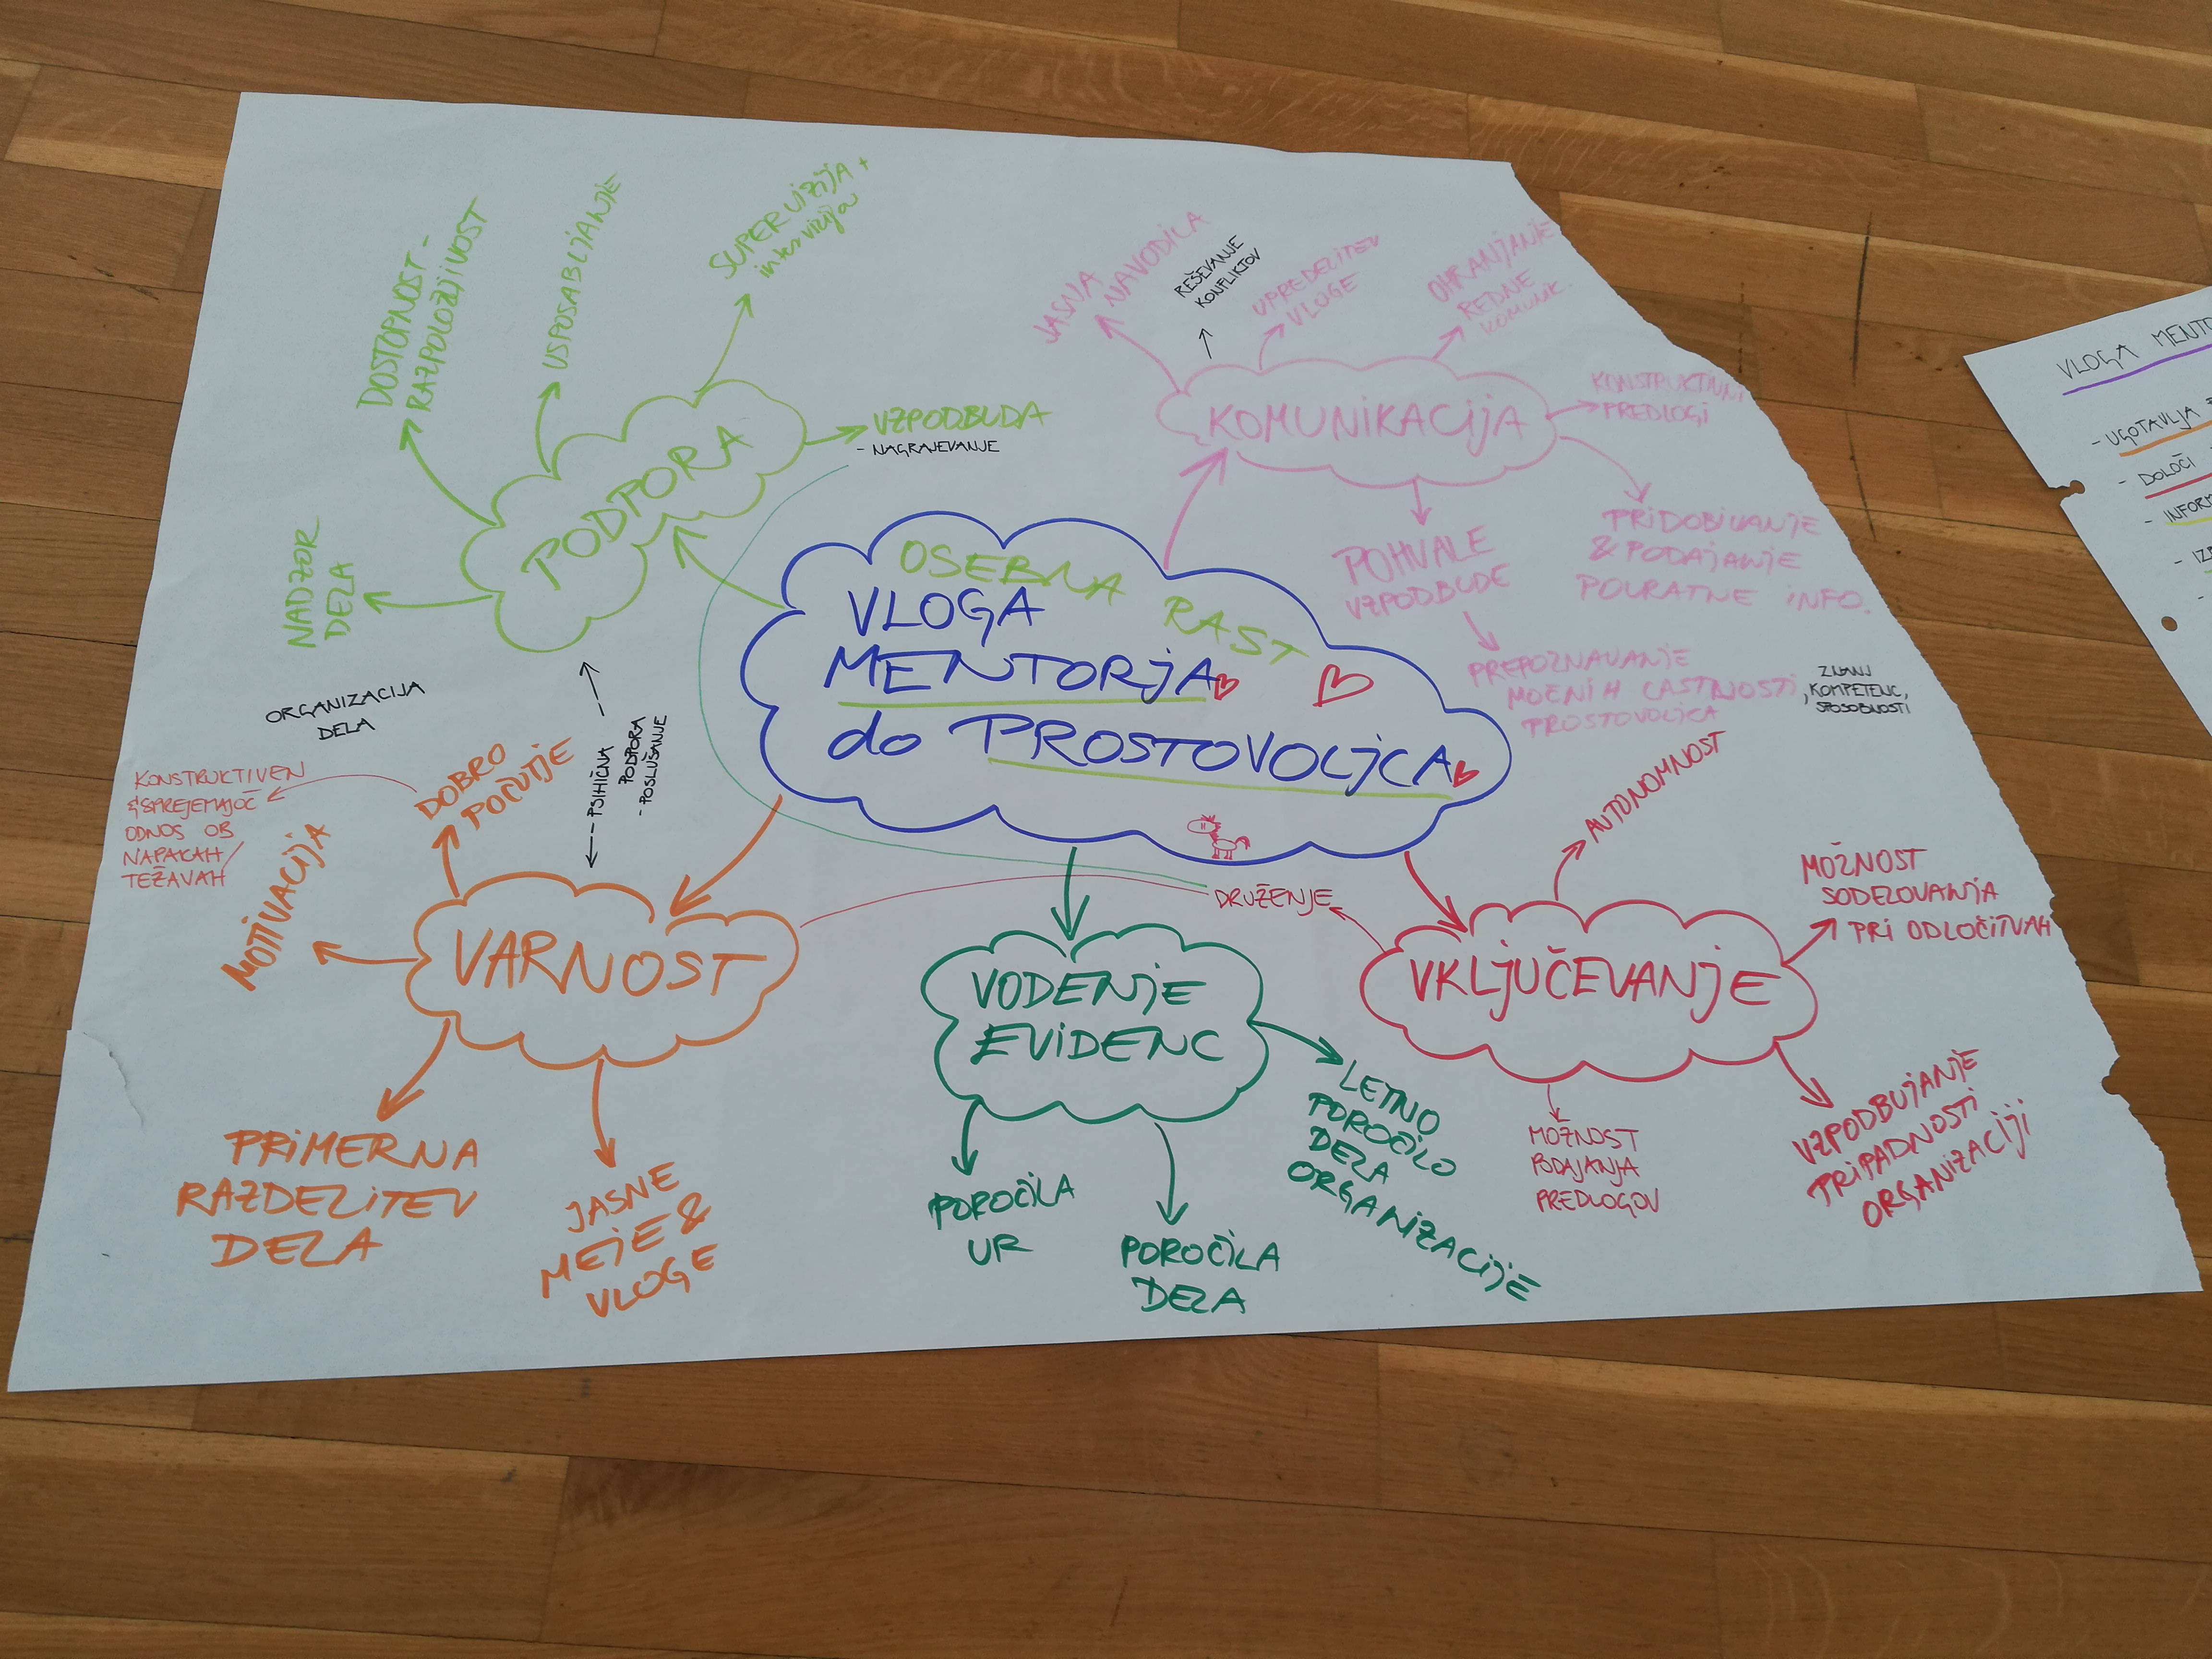 DOSTOPNOST -
RAZPOLOŽLJIVOST
USPOSABLJANJE
SUPERVIZIJA +
intervizija
VZPODBUDA
- NAGRAJEVANJE
PODPORA
NADZOR
DELA
JASNA
NAVODILA
REŠEVANJE
KONFLIKTOV
UPREDELITEV
VLOGE
OHRANJANJE
REDNE
KOMUNIK.
KOMUNIKACIJA
KONSTRUKTIVNI
PREDLOGI
PRIDOBIVANJE
& PODAJANJE
POVRATNE INFO.
POHVALE
VZPODBUDE
PREPOZNAVANJE
MOČNIH LASTNOSTI
PROSTOVOLJCA
, ZNANJ
KOMPETENC,
SPOSOBNOSTI
OSEBNA RAST
VLOGA
MENTORJA
do PROSTOVOLJCA
ORGANIZACIJA
DELA
PSIHIČNA
PODPORA
- POSLUŠANJE
DOBRO
POČUTJE
KONSTRUKTIVEN
& SPREJEMAJOČ
ODNOS OB
NAPAKAH/
TEŽAVAH
MOTIVACIJA
VARNOST
PRIMERNA
RAZDELITEV
DELA
JASNE
MEJE &
VLOGE
DRUŽENJE
VODENJE
EVIDENC
POROČILA
UR
POROČILA
DELA
LETNO
POROČILO
DELA
ORGANIZACIJE
VKLJUČEVANJE
AUTONOMNOST
MOŽNOST
SODELOVANJA
PRI ODLOČITVAH
MOŽNOST
PODAJANJA
PREDLOGOV
VZPODBUJANJE
PRIPADNOSTI
ORGANIZACIJI
VLOGA MENTO
- UGOTAVLJA
- DOLOČI
- INFORM
- IZ
-